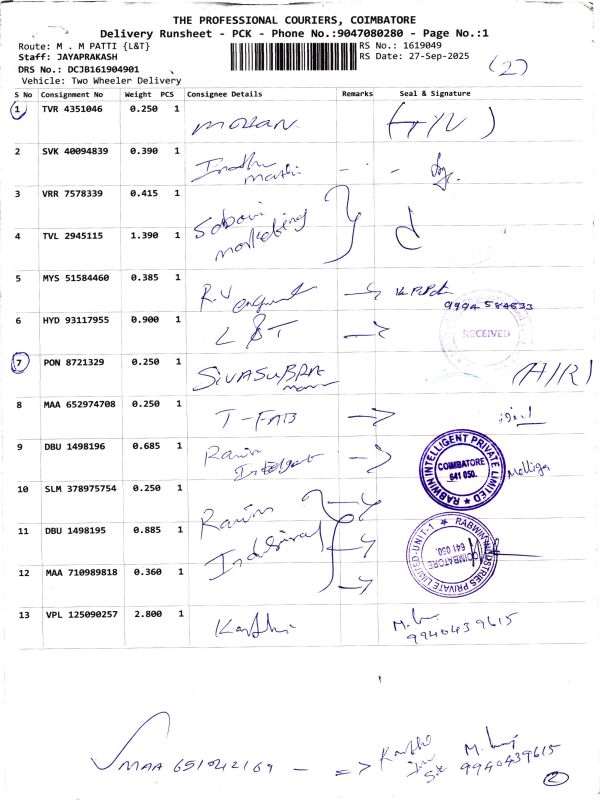 THE PROFESSIONAL COURIERS, COIMBATORE
Delivery Runsheet - PCK - Phone No.:9047080280 - Page No.:1
Route: M . M PATTI {L&T}
RS No.: 1619049
Staff: JAYAPRAKASH
RS Date: 27-Sep-2025
DRS No.: DCJB161904901
Vehicle: Two Wheeler Delivery
(2)
S No Consignment No Weight PCS Consignee Details Remarks Seal & Signature
1 TVR 4351046 0.250 1 MOHAN
2 SVK 40094839 0.390 1 Indhu mathi
3 VRR 7578339 0.415 1 Sabari marketing
4 TVL 2945115 1.390 1
5 MYS 51584460 0.385 1 R.V
9994584633
6 HYD 93117955 0.900 1 L&T
RECEIVED
7 PON 8721329 0.250 1 SIVASUBRA
8 MAA 652974708 0.250 1 T-FAB
9 DBU 1498196 0.685 1
RABWIN INTELLIGENT PRIVATE LIMITED
COIMBATORE
641 050.
10 SLM 378975754 0.250 1
11 DBU 1498195 0.885 1
RABWIN INDUSTRIES PRIVATE LIMITED-UNIT-1
COIMBATORE
641 050.
12 MAA 710989818 0.360 1
13 VPL 125090257 2.800 1 Karthi
9940439615
MAA 651042169 - => Karthi
9940439615
2